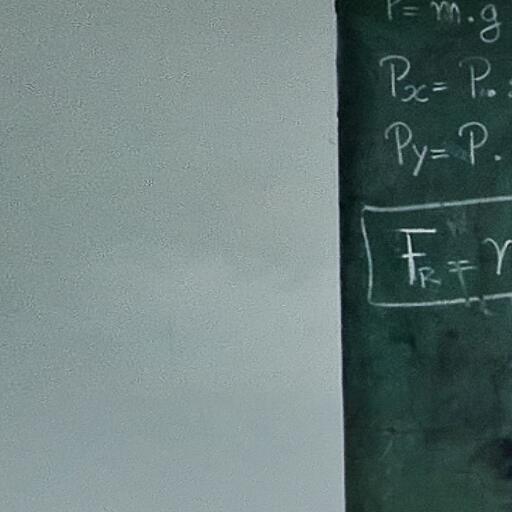 P = m.g
Px = P.
Py = P.
FR =